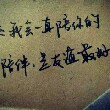 我会一直陪你的
陪伴,是友谊最好的